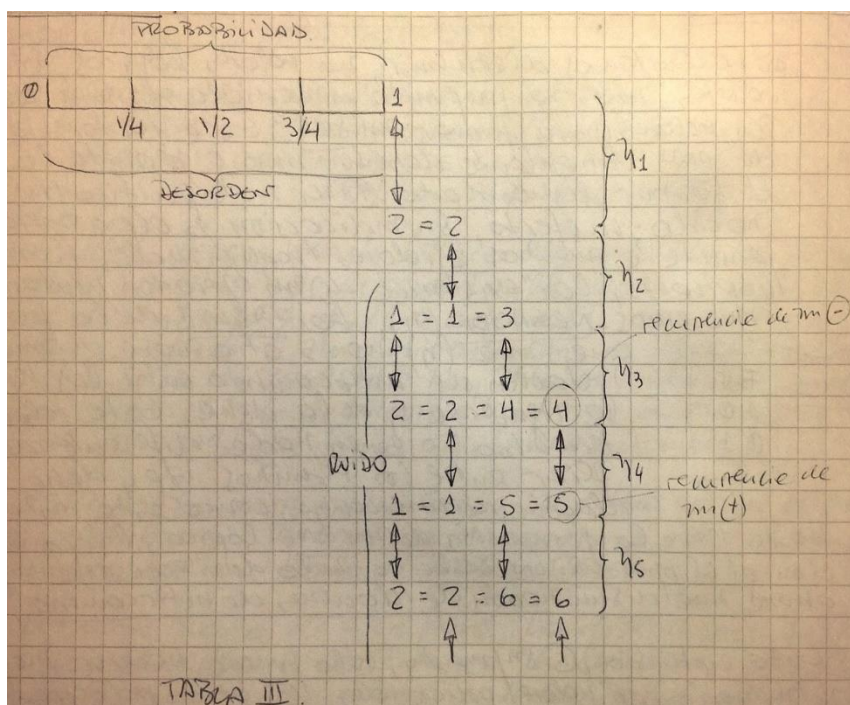 PROBABILIDAD
0 1
1/4 1/2 3/4
DESORDEN
η1
2 = 2
η2
1 = 1 = 3
recurrencia de m(-)
η3
2 = 2 = 4 = 4
RUIDO
η4
1 = 1 = 5 = 5
recurrencia de
m(+)
η5
2 = 2 = 6 = 6
TABLA III.